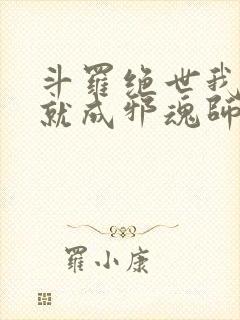 斗羅絕世我
就成邪魂師
羅小康